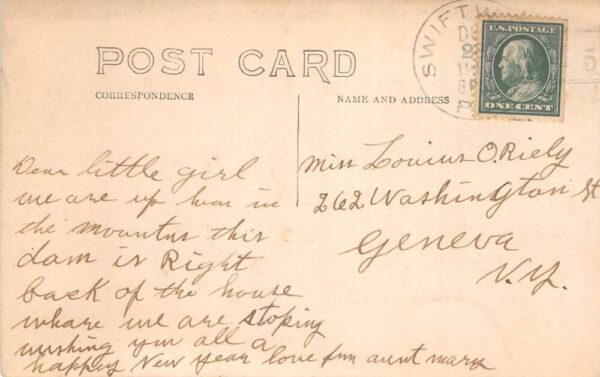 POST CARD
CORRESPONDENCE
NAME AND ADDRESS
SWIFT
U.S. POSTAGE
ONE CENT
Dear little girl
we are up hear in
the mountns this
dam is Right
back of the house
whare we are stoping
wishing you all a
happy New Year love frm aunt mary
Miss Louius O. Riely
262 Washington St
Geneva
N.Y.